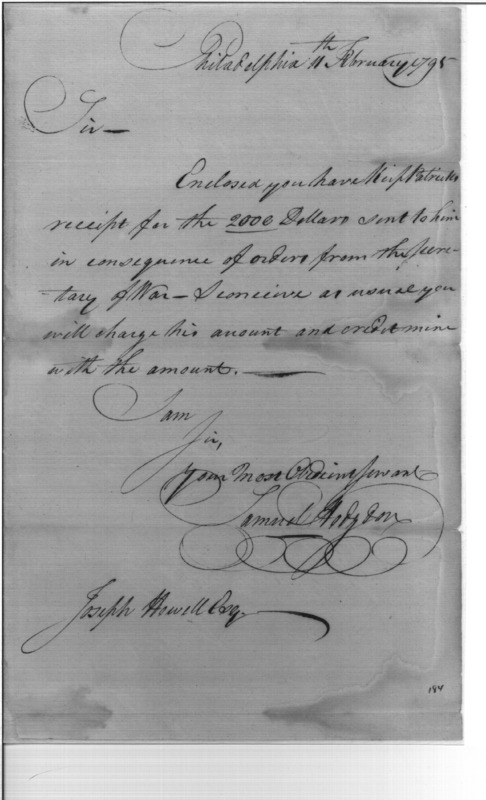 Philadelphia 11th February 1795
Sir—
Enclosed you have Kirkpatricks
receipt for the 2000 Dollars sent to him
in consequence of orders from the Secre-
tary of War — I conceive as usual you
will charge his acount and credit mine
with the amount. —
I am
Sir,
your Most Obedient Servant
Samuel Hodgdon
Joseph Howell Esq.
184